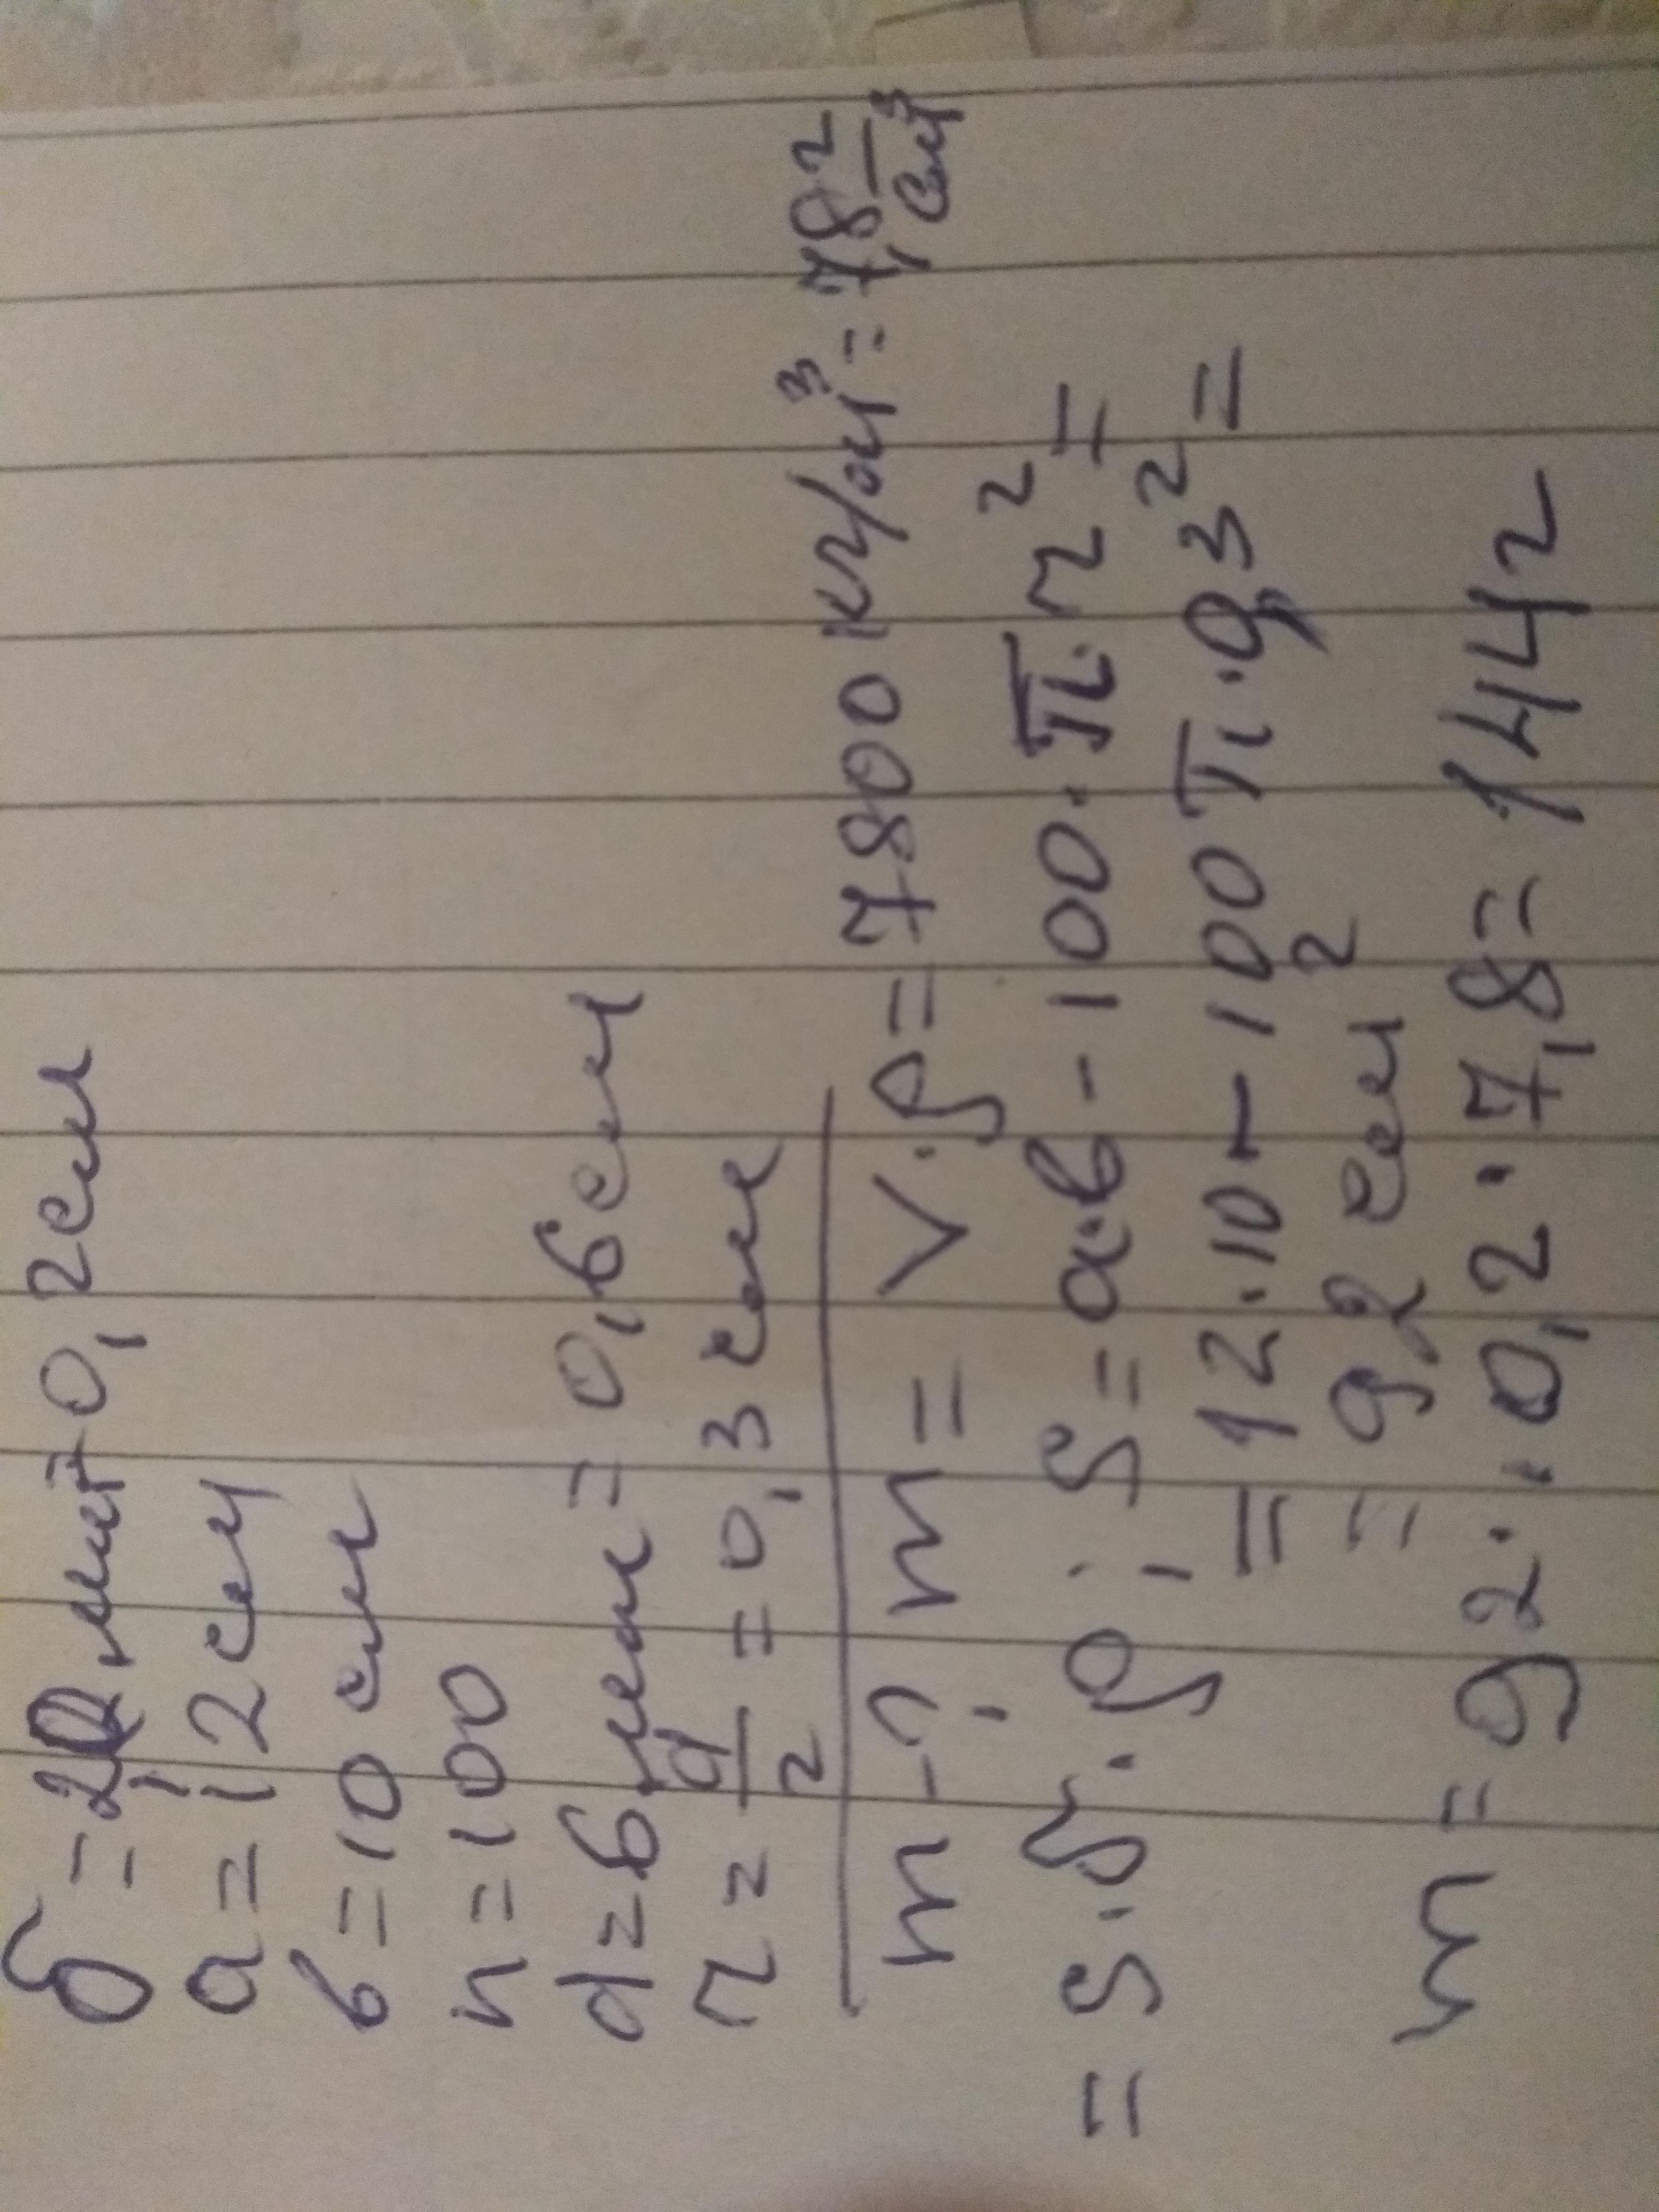 δ = 2 мм = 0,2 см
a = 12 см
b = 10 см
n = 100
d = 6 мм = 0,6 см
r = d/2 = 0,3 см
m - ? m = V · ρ = 7800 кг/м³ = 7,8 г/см³
= S · δ · ρ ; S = a·b - 100 · π · r² =
= 12·10 - 100 π · 0,3² =
= 92 см²
m = 92 · 0,2 · 7,8 = 144 г